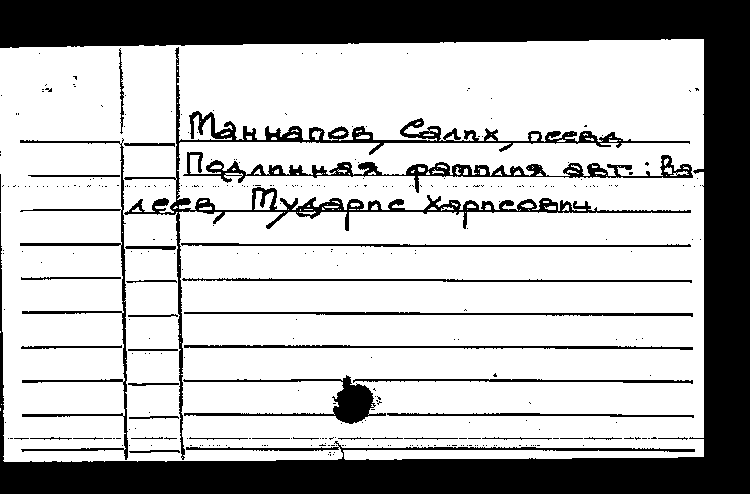 Маннапов, Салих, псевд.
Подлинная фамилия авт.: Ва-
леев, Мударис Харисович.